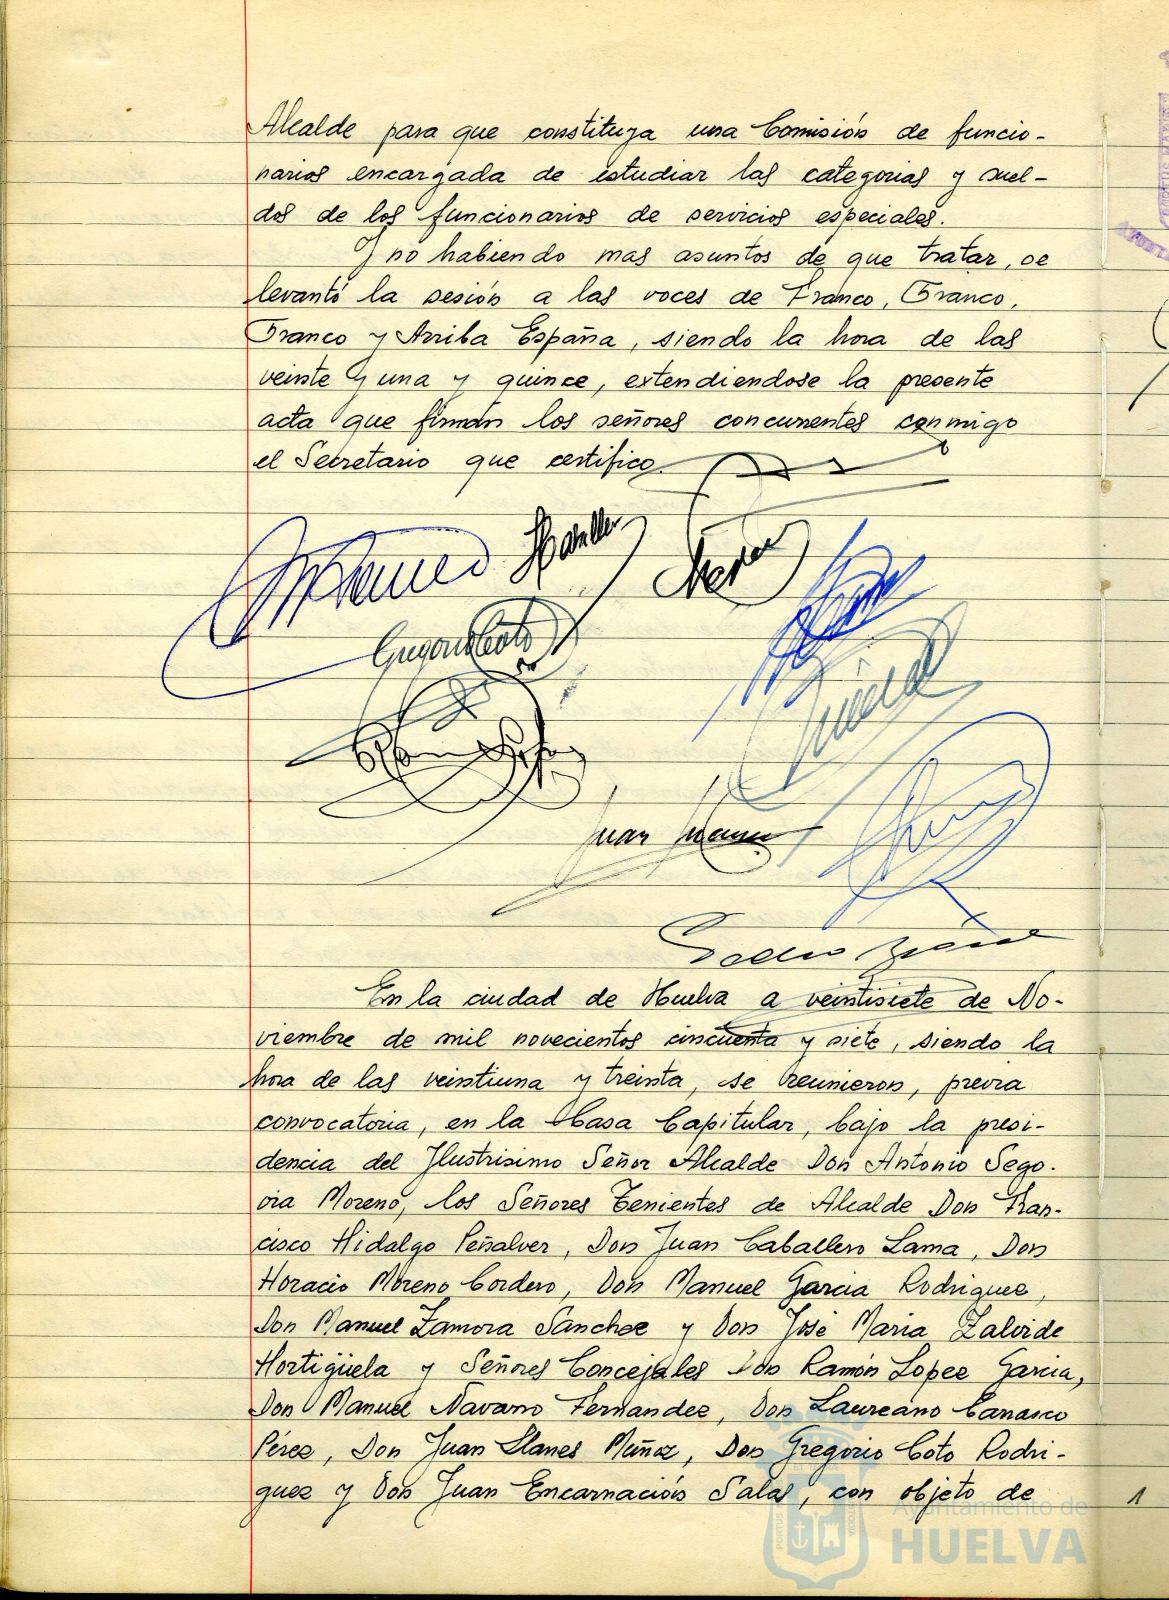 Alcalde para que constituya una Comisión de funcio-
narios encargada de estudiar las categorias y suel-
dos de los funcionarios de servicios especiales.
Y no habiendo mas asuntos de que tratar, se
levantó la sesión a las voces de Franco, Franco,
Franco y Arriba España, siendo la hora de las
veinte y una y quince, extendiendose la presente
acta que firman los señores concurrentes conmigo
el Secretario que certifico.
Gregorio Coto
Juan
En la ciudad de Huelva a veintisiete de No-
viembre de mil novecientos cincuenta y siete, siendo la
hora de las veintiuna y treinta, se reunieron, previa
convocatoria, en la Casa Capitular, bajo la presi-
dencia del Ilustrisimo Señor Alcalde Don Antonio Sego-
via Moreno, los Señores Tenientes de Alcalde Don Fran-
cisco Hidalgo Peñalver, Don Juan Caballero Lama, Don
Horacio Moreno Cordero, Don Manuel Garcia Rodriguez,
Don Manuel Zamora Sanchez y Don José Maria Zalvide
Hortigüela y Señores Concejales Don Ramón Lopez Garcia,
Don Manuel Navarro Fernandez, Don Laureano Carrasco
Pérez, Don Juan Llanes Muñoz, Don Gregorio Coto Rodri-
guez y Don Juan Encarnación Salas, con objeto de
Ayuntamiento de
HUELVA